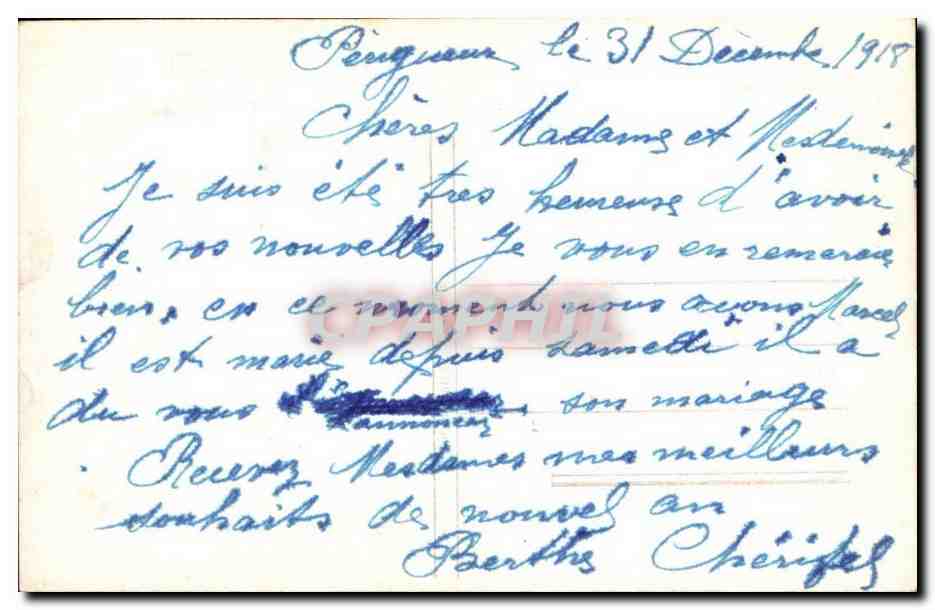 Périgueux le 31 Décembre 1918
Chères Madame et Mesdemoiselle
Je suis été très heureuse d'avoir
de vos nouvelles Je vous en remercie
bien. en ce moment nous avons Marcel
il est marié depuis samedi il a
du vous
annoncer son mariage
Recevez Mesdames mes meilleurs
souhaits de nouvel an
Berthe
CPAPHIL